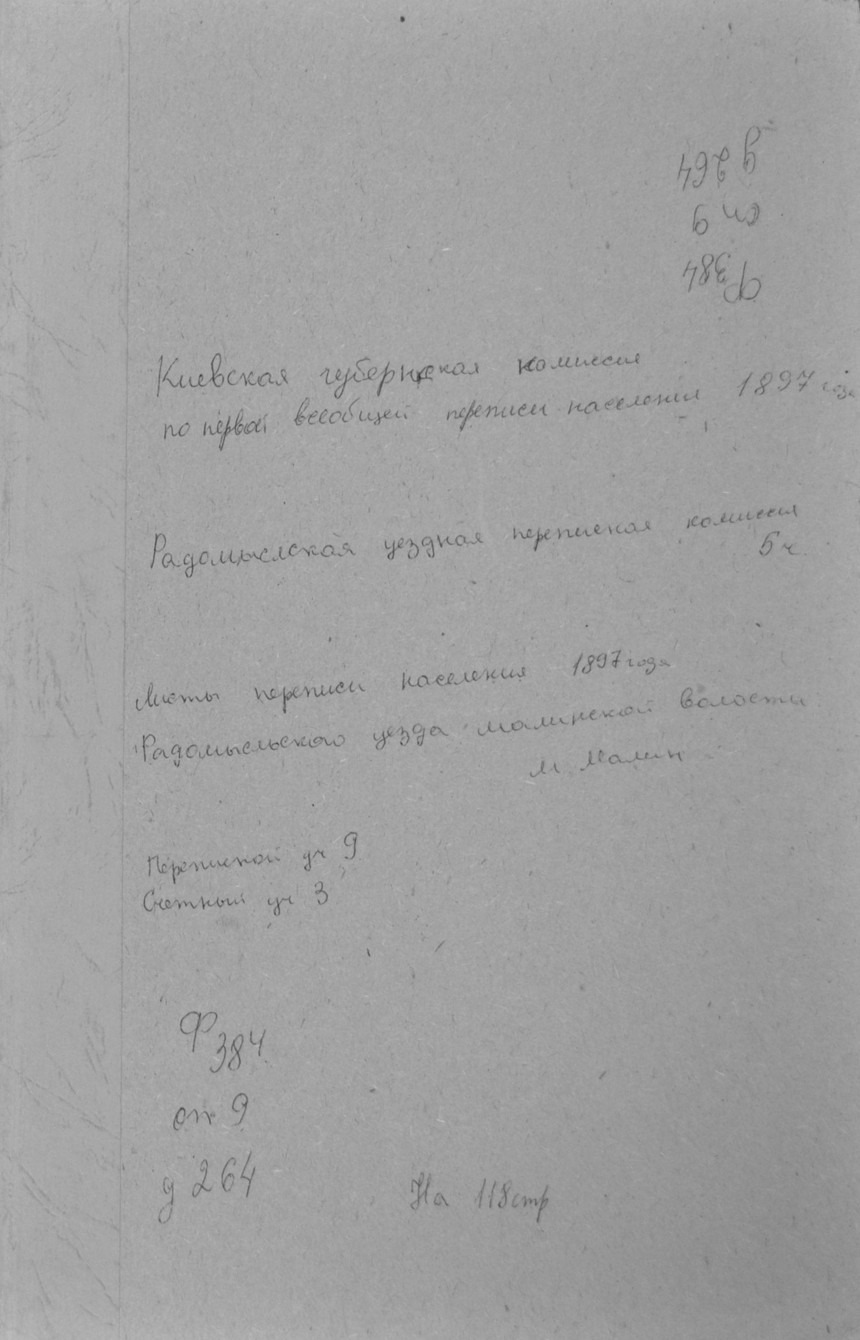 д 264
оп 9
Ф 384
Киевская губернская комиссия
по первой всеобщей переписи населения 1897 года
Радомыслская уездная переписная комиссия
5 ч.
Листы переписи населения 1897 года
Радомысльского уезда Малинской волости
м Малин
Переписной уч 9
Счетный уч 3
Ф 384
оп 9
д 264
На 118 стр